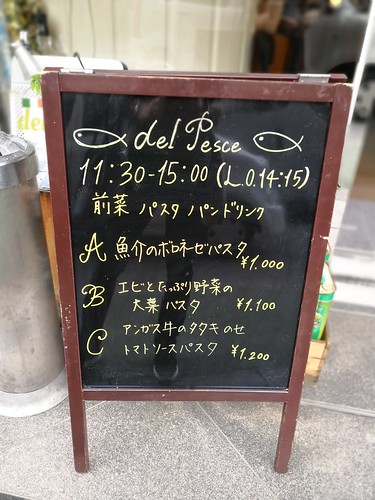 del Pesce
11:30-15:00 (L.O.14:15)
前菜 パスタ パンドリンク
A 魚介のボロネーゼパスタ
¥1.000
B エビとたっぷり野菜の
大葉パスタ ¥1.100
C アンガス牛のタタキのせ
トマトソースパスタ ¥1.200